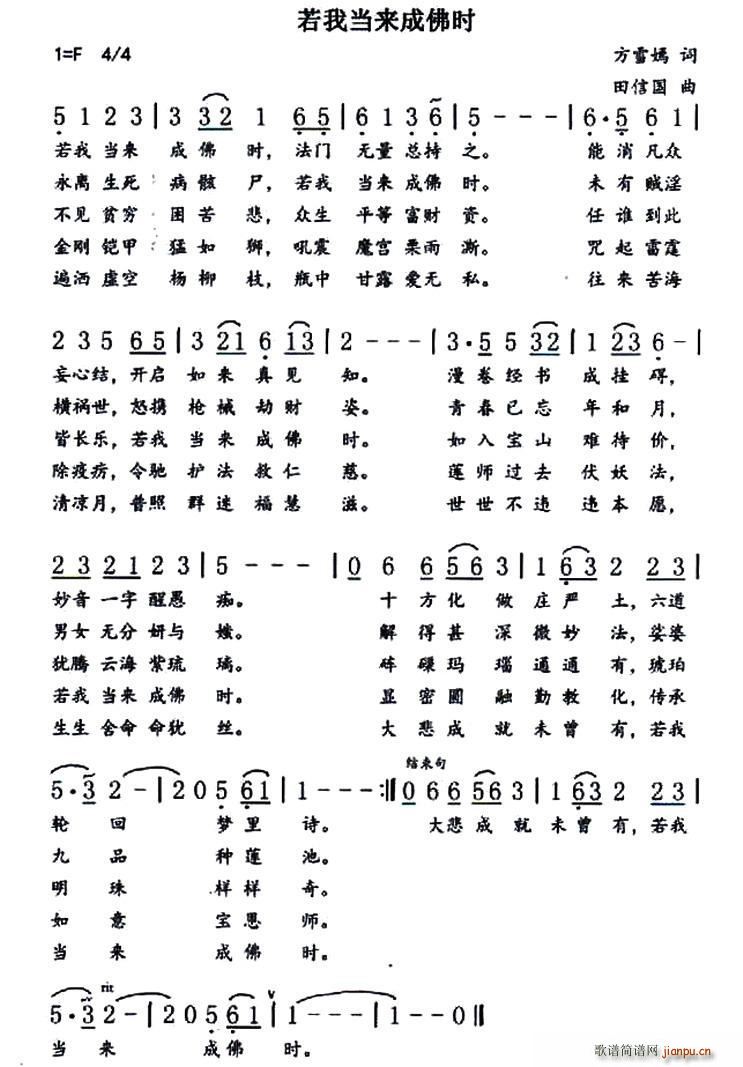 若我当来成佛时
1=F 4/4
方雪嫣 词
田信国 曲
5 1 2 3 | 3 32 1 65 | 6 1 3 6 | 5 - - - | 6· 5 6 1 |
若我 当来 成佛 时，法门 无量 总持 之。 能消凡众
永离 生死 病骸 尸，若我 当来 成佛 时。 未有贼淫
不见 贫穷 困苦 悲，众生 平等 富财 资。 任谁到此
金刚 铠甲 猛如 狮，吼震 魔宫 栗雨 澌。 咒起雷霆
遍洒 虚空 杨柳 枝，瓶中 甘露 爱无 私。 往来苦海
2 3 5 65 | 3 21 6 13 | 2 - - - | 3· 5 5 32 | 1 23 6 - |
妄心结，开启 如来真见 知。 漫卷经书 成挂碍，
横祸世，怒携 枪械劫财 姿。 青春已忘 年和月，
皆长乐，若我 当来成佛 时。 如入宝山 难待价，
除疫疠，令驰 护法救仁 慈。 莲师过去 伏妖法，
清凉月，普照 群迷福慧 滋。 世世不违 违本愿，
23 21 2 3 | 5 - - - | 0 6 6 563 | 1 63 2 23 |
妙音 一字 醒愚 痴。 十方化 做庄严 土，六道
男女 无分 妍与 媸。 解得甚 深微妙 法，娑婆
犹腾 云海 紫琉 璃。 砗磲玛 瑙通通 有，琥珀
若我 当来 成佛 时。 显密圆 融勤教 化，传承
生生 舍命 命犹 丝。 大悲成 就未曾 有，若我
结束句
5· 3 2 - | 2 0 5 61 | 1 - - - :‖ 0 6 6 563 | 1 63 2 23 |
轮 回 梦里 诗。 大悲成就未曾有，若我
九 品 种莲 池。
明 珠 样样 奇。
如 意 宝恩 师。
当 来 成佛 时。
rit
5· 3 2 - | 2 0 5 61 | 1 - - - | 1 - - 0 ‖
当 来 成佛 时。
歌谱简谱网 jianpu.cn